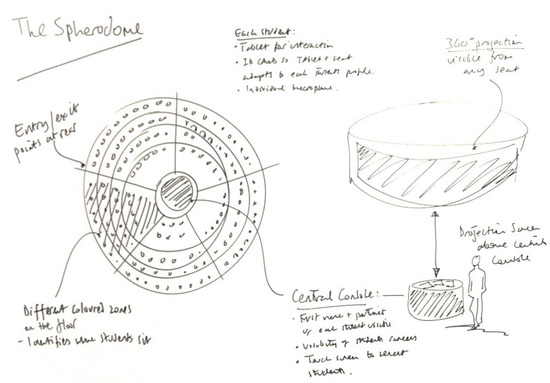 The Spherodome
Each student:
• Tablet for interaction
• ID cards so Tablet + seat
adapts to each students profile.
• Individual microphone.
360° projection
visible from
any seat
Entry/exit
points at rear
Projection Screen
above central
console
Different coloured zones
on the floor
- Identifies where students sit
Central Console:
• First name + portrait
of each student visible
• Visibility of students screens
• Touch screen to select
students.